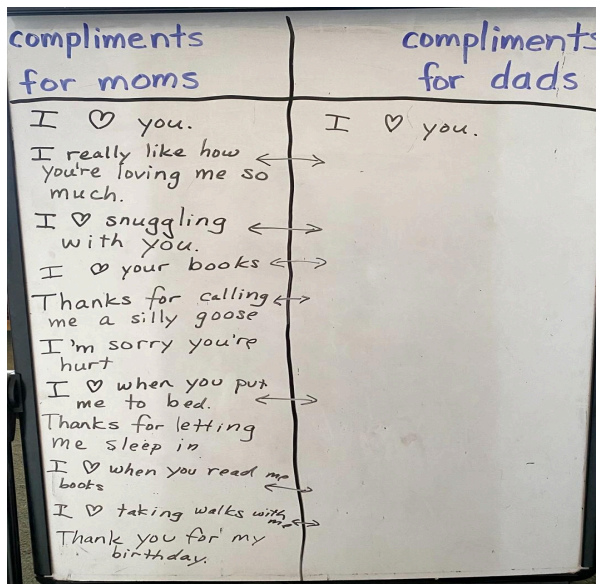 compliments
for moms
I ♡ you.
I really like how
you're loving me so
much.
I ♡ snuggling
with you.
I ♡ your books
Thanks for calling
me a silly goose
I'm sorry you're
hurt
I ♡ when you put
me to bed.
Thanks for letting
me sleep in
I ♡ when you read me
books
I ♡ taking walks with
me
Thank you for my
birthday.
compliments
for dads
I ♡ you.